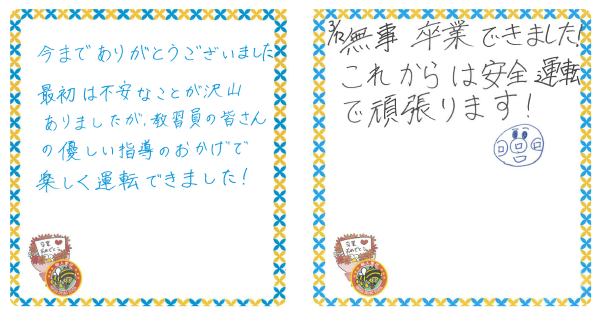 今までありがとうございました
最初は不安なことが沢山
ありましたが、教習員の皆さん
の優しい指導のおかげで
楽しく運転できました!
卒業
おめでとう
3/12 無事 卒業できました!
これからは安全運転
で頑張ります!
卒業
おめでとう